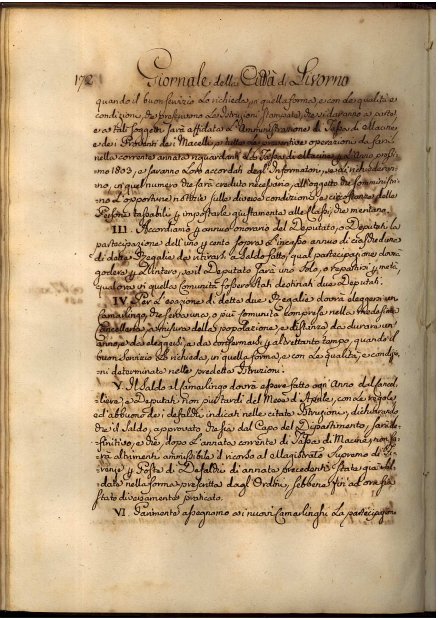 172
Giornale della Città di Livorno
quando il buon servizio lo richieda, in quella forma, e con le qualità, e
condizioni, che prescrivono le Istruzioni stampate, che si daranno a parte,
e a tali soggetti sarà affidata l'Amministrazione di Tassa di Macine,
e dei Proventi dei Macelli, e operazioni da farsi
nella corrente annata riguardanti la Tassa di Macine e l'Anno prossimo
1803, e saranno loro accordati degl'Informatori, se si richiederanno
, in quel numero che sarà creduto necessario, all'oggetto che somministrino
le opportune notizie sulle diverse condizioni, e circostanze delle
Persone tassabili, e impostarle giustamente alle Classi, che meritano.
III. Accordiamo per annuo onorario del Deputato, o Deputati la
partecipazione dell'uno per cento sopra l'incasso annuo di ciascheduna
di dette Regalie da ritirarsi a Saldo fatto, qual partecipazione dovrà
godersi per l'intero, se il Deputato sarà uno solo, o repartirsi per metà,
qualora in quella Comunità fossero stati destinati due Deputati.
IV. Per l'esazione di dette due Regalie dovrà eleggersi un
Camarlingo, che serva una, o più Comunità comprese nella medesima
Cancelleria, a misura della popolazione, e distanza da durare un
anno, e da eleggersi, e da confermarsi per altrettanto tempo, quando il
buon servizio lo richieda, in quella forma, e con le qualità, e condizioni
determinate nelle predette Istruzioni.
V. Il Saldo al Camarlingo dovrà essere fatto ogni Anno dal Cancelliere
, e Deputati non più tardi del Mese di Aprile, con le regole,
ed abbuono dei defalchi indicati nelle citate Istruzioni, dichiarando
che il Saldo, approvato che sia dal Capo del Dipartimento, sarà definitivo
, e che, dopo l'annata corrente di Tassa di Macine, non sarà
altrimenti ammissibile il ricorso al Magistrato Supremo di Firenze
per Poste di Defalchi di annate precedenti state già saldate
nella forma prescritta dagl'Ordini, sebbene fin ad ora sia
stato diversamente praticato.
VI. Parimente assegnamo ai nuovi Camarlinghi la partecipazione